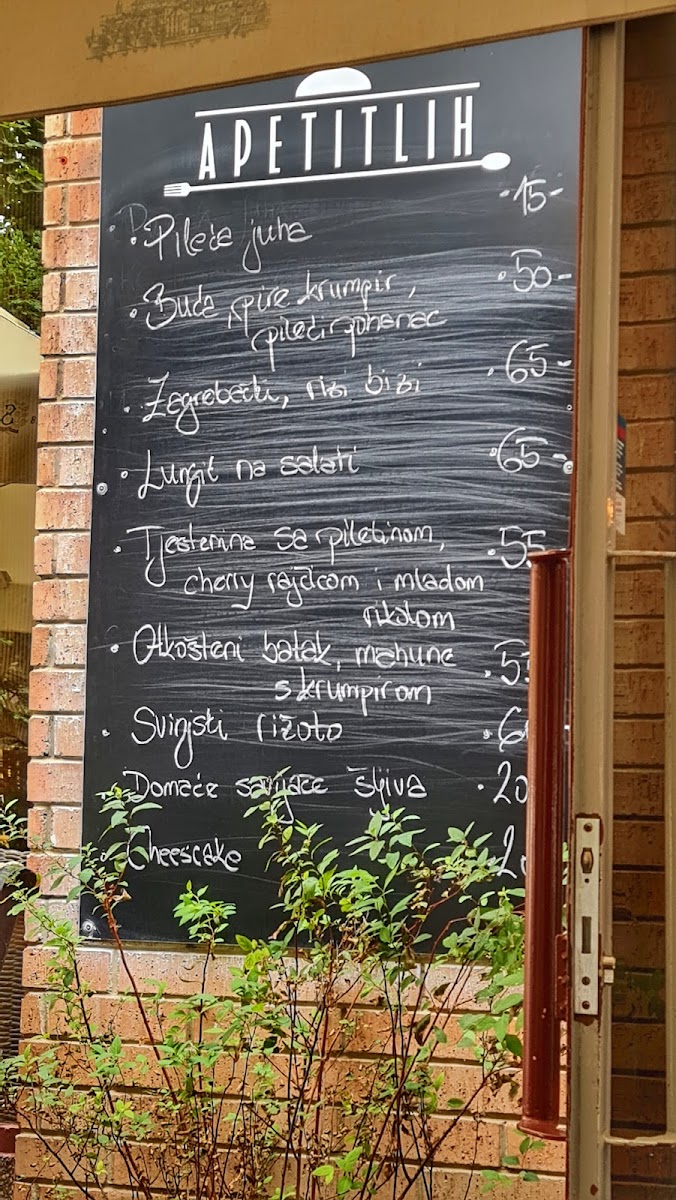 APETITLIH
• Pileća juha -15-
• Buća, pire krumpir, • 50-
pileći pohanac
• Zagrebački, rizi bizi • 65-
• Lungić na salati • 65-
• Tjestenina sa piletinom, • 55
cherry rajčicom i mladom
rikolom
• Otkošteni batak, mahune • 55
s krumpirom
• Svinjski rižoto • 6
Domaće savijače šljiva • 20
• Cheescake 2